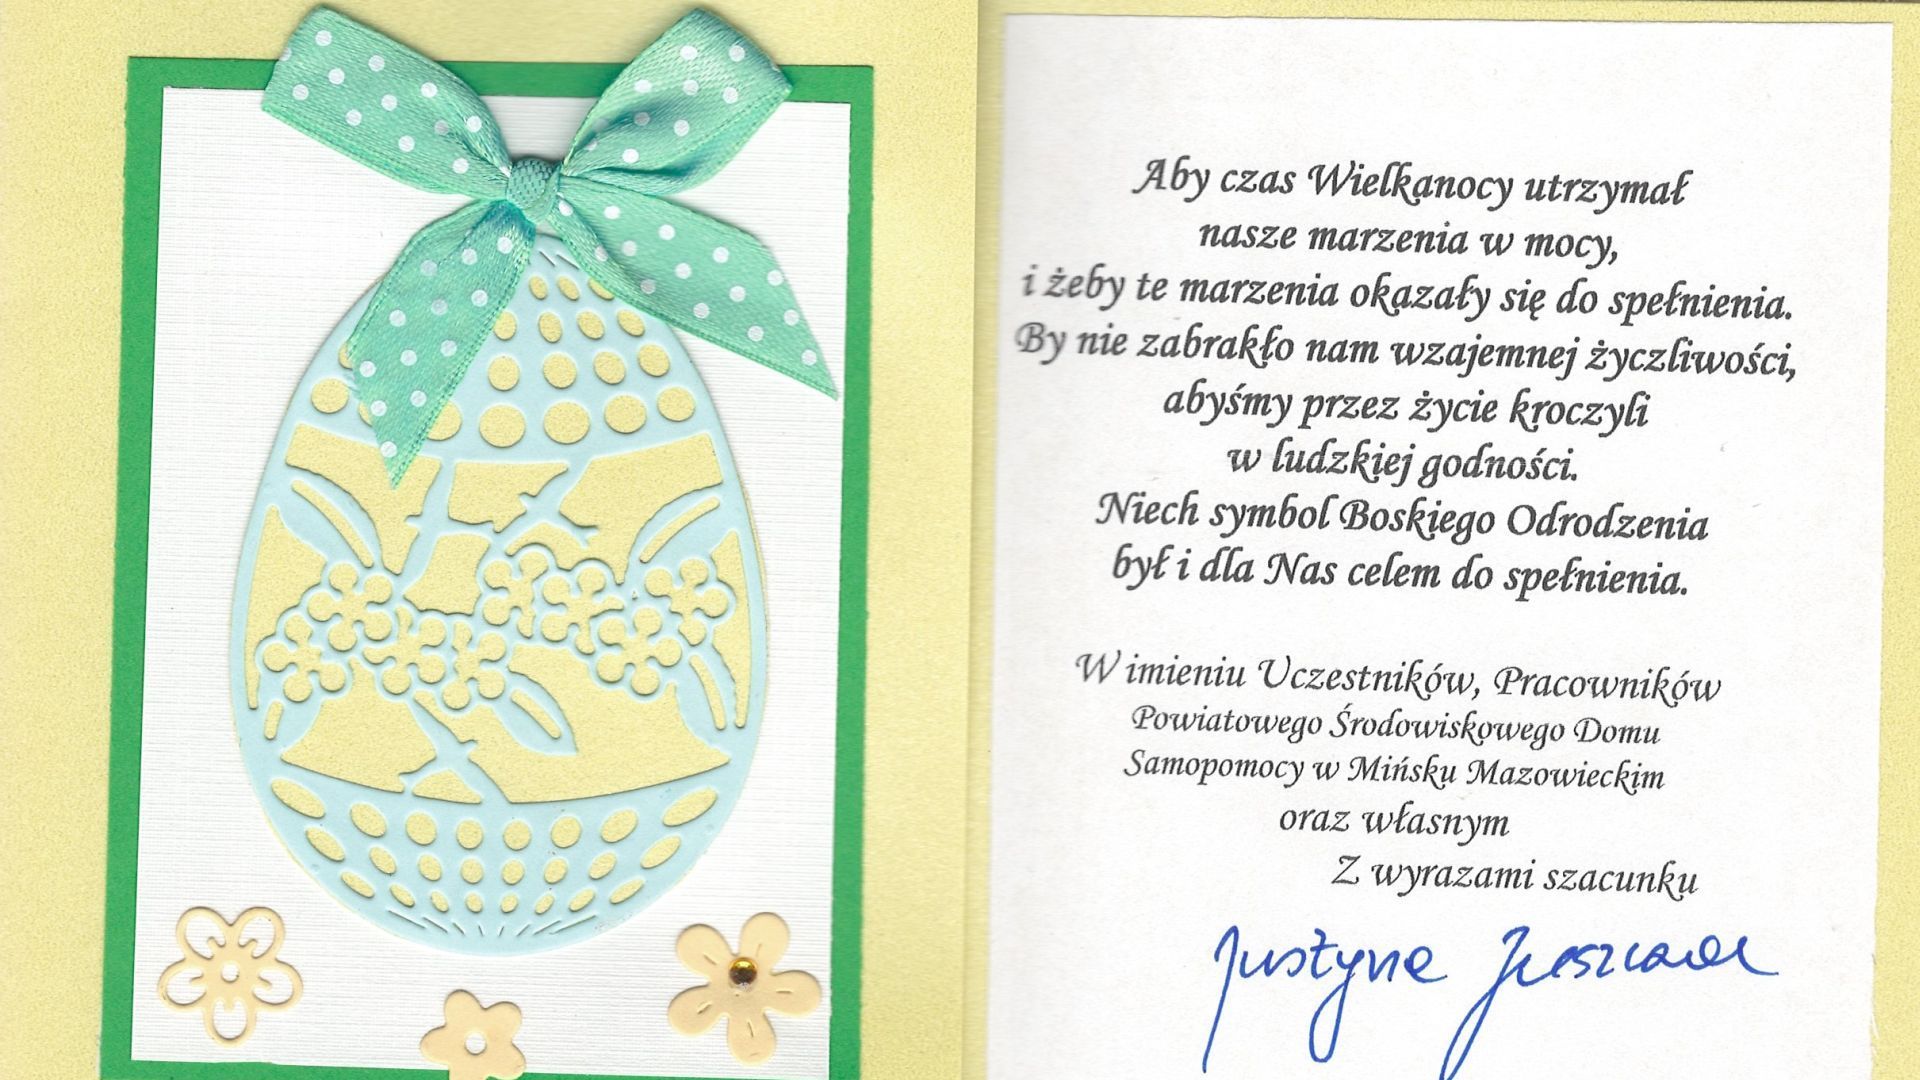 Aby czas Wielkanocy utrzymał
nasze marzenia w mocy,
i żeby te marzenia okazały się do spełnienia.
By nie zabrakło nam wzajemnej życzliwości,
abyśmy przez życie kroczyli
w ludzkiej godności.
Niech symbol Boskiego Odrodzenia
był i dla Nas celem do spełnienia.
W imieniu Uczestników, Pracowników
Powiatowego Środowiskowego Domu
Samopomocy w Mińsku Mazowieckim
oraz własnym
Z wyrazami szacunku
Justyna